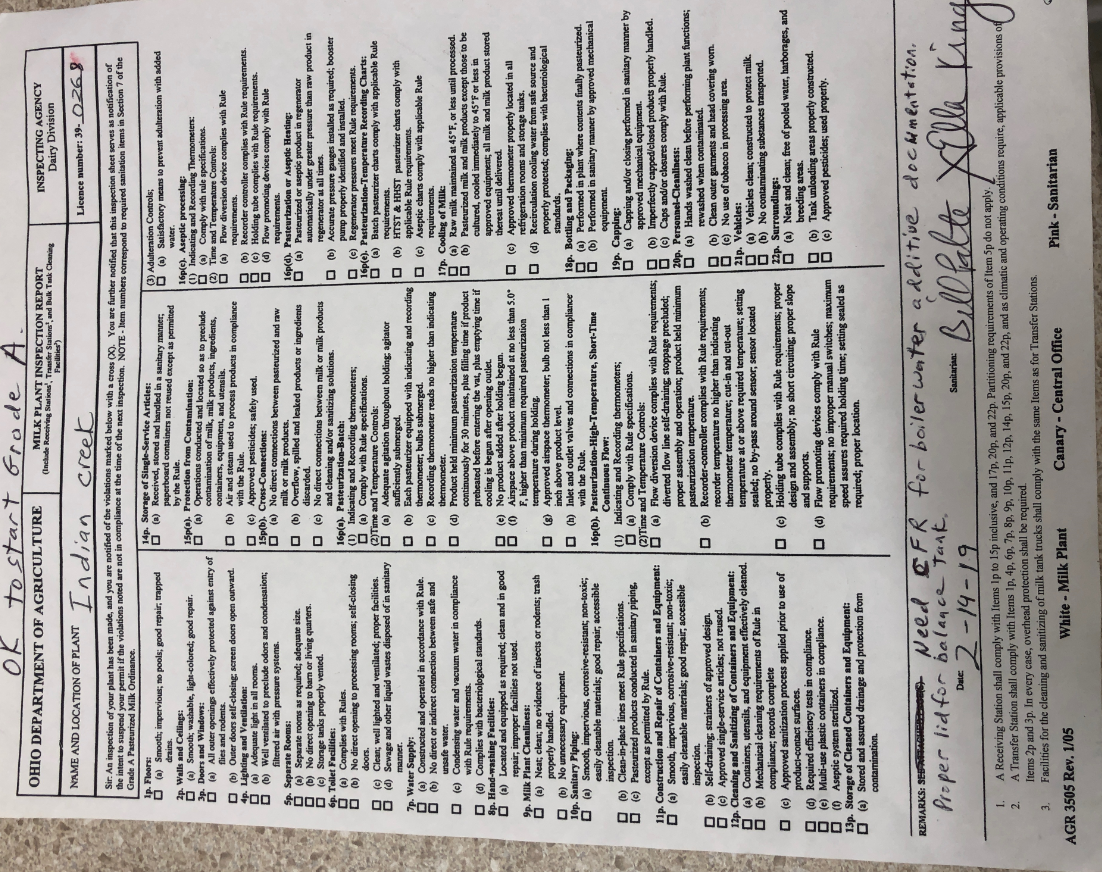 OK to start Grade A.
OHIO DEPARTMENT OF AGRICULTURE
MILK PLANT INSPECTION REPORT
(Include Receiving Stations¹, Transfer Stations², and Bulk Tank Cleaning Facilities³)
INSPECTING AGENCY
Dairy Division
NAME AND LOCATION OF PLANT Indian creek
Licence number: 39-0268
Sir: An inspection of your plant has been made, and you are notified of the violations marked below with a cross (X). You are further notified that this inspection sheet serves as notification of
the intent to suspend your permit if the violations noted are not in compliance at the time of the next inspection. NOTE - Item numbers correspond to required sanitation items in Section 7 of the
Grade A Pasteurized Milk Ordinance.
1p. Floors:
(a) Smooth; impervious; no pools; good repair; trapped
drains.
2p. Walls and Ceilings:
(a) Smooth; washable, light-colored; good repair.
3p. Doors and Windows:
(a) All outer openings effectively protected against entry of
flies and rodents.
(b) Outer doors self-closing; screen doors open outward.
4p. Lighting and Ventilation:
(a) Adequate light in all rooms.
(b) Well ventilated to preclude odors and condensation;
filtered air with pressure air systems.
5p. Separate Rooms:
(a) Separate rooms as required; adequate size.
(b) No direct opening to barn or living quarters.
(c) Storage tanks properly vented.
6p. Toilet Facilities:
(a) Complies with Rules.
(b) No direct opening to processing rooms; self-closing
doors.
(c) Clean; well lighted and ventilated; proper facilities.
(d) Sewage and other liquid wastes disposed of in sanitary
manner.
7p. Water Supply:
(a) Constructed and operated in accordance with Rule.
(b) No direct or indirect connection between safe and
unsafe water.
(c) Condensing water and vacuum water in compliance
with Rule requirements.
(d) Complies with bacteriological standards.
8p. Hand-washing Facilities:
(a) Located and equipped as required; clean and in good
repair; improper facilities not used.
9p. Milk Plant Cleanliness:
(a) Neat; clean; no evidence of insects or rodents; trash
properly handled.
(b) No unnecessary equipment.
10p. Sanitary Piping:
(a) Smooth, impervious, corrosive-resistant; non-toxic;
easily cleanable materials; good repair; accessible
inspection.
(b) Clean-in-place lines meet Rule specifications.
(c) Pasteurized products conducted in sanitary piping,
except as permitted by Rule.
11p. Construction and Repair of Containers and Equipment:
(a) Smooth, impervious, corrosive-resistant; non-toxic;
easily cleanable materials; good repair; accessible
inspections.
(b) Self-draining; strainers of approved design.
(c) Approved single-service articles; not reused.
12p. Cleaning and Sanitizing of Containers and Equipment:
(a) Containers, utensils, and equipment effectively cleaned.
(b) Mechanical cleaning requirements of Rule in
compliance; records complete
(c) Approved sanitization process applied prior to use of
product-contact surfaces.
(d) Required efficiency tests in compliance.
(e) Multi-use plastic containers in compliance.
(f) Aseptic system sterilized.
13p. Storage of Cleaned Containers and Equipment:
(a) Stored and assured drainage and protection from
contamination.
14p. Storage of Single-Service Articles:
(a) Received, stored and handled in a sanitary manner;
paperboard containers not reused except as permitted
by the Rule.
15p(a) Protection from Contamination:
(a) Operations conducted and located so as to preclude
contamination of milk, milk products, ingredients,
containers, equipment, and utensils.
(b) Air and steam used to process products in compliance
with the Rule.
(c) Approved pesticides; safely used.
15p(b). Cross-Connections:
(a) No direct connections between pasteurized and raw
milk or milk products.
(b) Overflow, spilled and leaked products or ingredients
discarded.
(c) No direct connections between milk or milk products
and cleaning and/or sanitizing solutions.
16p(a). Pasteurization-Batch:
(1) Indicating and Recording thermometers;
(a) Comply with Rule specifications.
(2)Time and Temperature Controls:
(a) Adequate agitation throughout holding; agitator
sufficiently submerged.
(b) Each pasteurizer equipped with indicating and recording
thermometer; bulbs submerged.
(c) Recording thermometer reads no higher than indicating
thermometer.
(d) Product held minimum pasteurization temperature
continuously for 30 minutes, plus filling time if product
preheated before entering the vat, plus emptying time if
cooling is begun after opening outlet.
(e) No product added after holding begun.
(f) Airspace above product maintained at no less than 5.0°
F, higher than minimum required pasteurization
temperature during holding.
(g) Approved airspace thermometer; bulb not less than 1
inch above product level.
(h) Inlet and outlet valves and connections in compliance
with the Rule.
16p(b). Pasteurization-High-Temperature, Short-Time
Continuous Flow:
(1) Indicating and Recording thermometers;
(a) Comply with Rule specifications.
(2)Time and Temperature Controls:
(a) Flow diversion device complies with Rule requirements;
diverted flow line self-draining; stoppage precluded;
proper assembly and operation; product held minimum
pasteurization temperature.
(b) Recorder-controller complies with Rule requirements;
recorder temperature no higher than indicating
thermometer temperature; cut-in and cut-out
temperature at or above required temperature; setting
sealed; no by-pass around sensor; sensor located
properly.
(c) Holding tube complies with Rule requirements; proper
design and assembly; no short circuiting; proper slope
and supports.
(d) Flow promoting devices comply with Rule
requirements; no improper manual switches; maximum
speed assures required holding time; setting sealed as
required; proper location.
(3) Adulteration Controls;
(a) Satisfactory means to prevent adulteration with added
water.
16p(c). Aseptic processing:
(1) Indicating and Recording Thermometers:
(a) Comply with rule specifications.
(2) Time and Temperature Controls:
(a) Flow diversion device complies with Rule
requirements.
(b) Recorder controller complies with Rule requirements.
(c) Holding tube complies with Rule requirements.
(d) Flow promoting devices comply with Rule
requirements.
16p(d). Pasteurization or Aseptic Heating:
(a) Pasteurized or aseptic product in regenerator
automatically under greater pressure than raw product in
regenerator at all times.
(b) Accurate pressure gauges installed as required; booster
pump properly identified and installed.
(c) Regenerator pressures meet Rule requirements.
16p(e). Pasteurization-Temperature Recording Charts:
(a) Batch pasteurizer charts comply with applicable Rule
requirements.
(b) HTST & HHST pasteurizer charts comply with
applicable Rule requirements.
(c) Aseptic charts comply with aseptic applicable Rule
requirements.
17p. Cooling of Milk:
(a) Raw milk maintained at 45°F, or less until processed.
(b) Pasteurized milk and milk products except those to be
cultured, cooled immediately to 45°F or less in
approved equipment; all milk and milk product stored
thereat until delivered.
(c) Approved thermometer properly located in all
refrigeration rooms and storage tanks.
(d) Recirculation cooling water from safe source and
properly protected; complies with bacteriological
standards.
18p. Bottling and Packaging:
(a) Performed in plant where contents finally pasteurized.
(b) Performed in sanitary manner by approved mechanical
equipment.
19p. Capping:
(a) Capping and/or closing performed in sanitary manner by
approved mechanical equipment.
(b) Imperfectly capped/closed products properly handled.
(c) Caps and/or closures comply with Rule.
20p. Personnel-Cleanliness:
(a) Hands washed clean before performing plant functions;
rewashed when contaminated.
(b) Clean outer garments and head covering worn.
(c) No use of tobacco in processing area.
21p. Vehicles:
(a) Vehicles clean; constructed to protect milk.
(b) No contaminating substances transported.
22p. Surroundings:
(a) Neat and clean; free of pooled water, harborages, and
breeding areas.
(b) Tank unloading areas properly constructed.
(c) Approved pesticides; used properly.
REMARKS:
Need CFR for boiler water additive documentation.
Proper lid for balance tank.
Date: 2-14-19
Sanitarian:
1. A Receiving Station shall comply with Items 1p to 15p inclusive, and 17p, 20p, and 22p. Partitioning requirements of Item 5p do not apply.
2. A Transfer Station shall comply with Items 1p, 4p, 6p, 7p, 8p, 9p, 10p, 11p, 12p, 14p, 15p, 20p, and 22p, and as climatic and operating conditions require, applicable provisions of
Items 2p and 3p. In every case, overhead protection shall be required.
3. Facilities for the cleaning and sanitizing of milk tank trucks shall comply with the same Items as for Transfer Stations.
AGR 3505 Rev. 1/05
White - Milk Plant
Canary - Central Office
Pink - Sanitarian